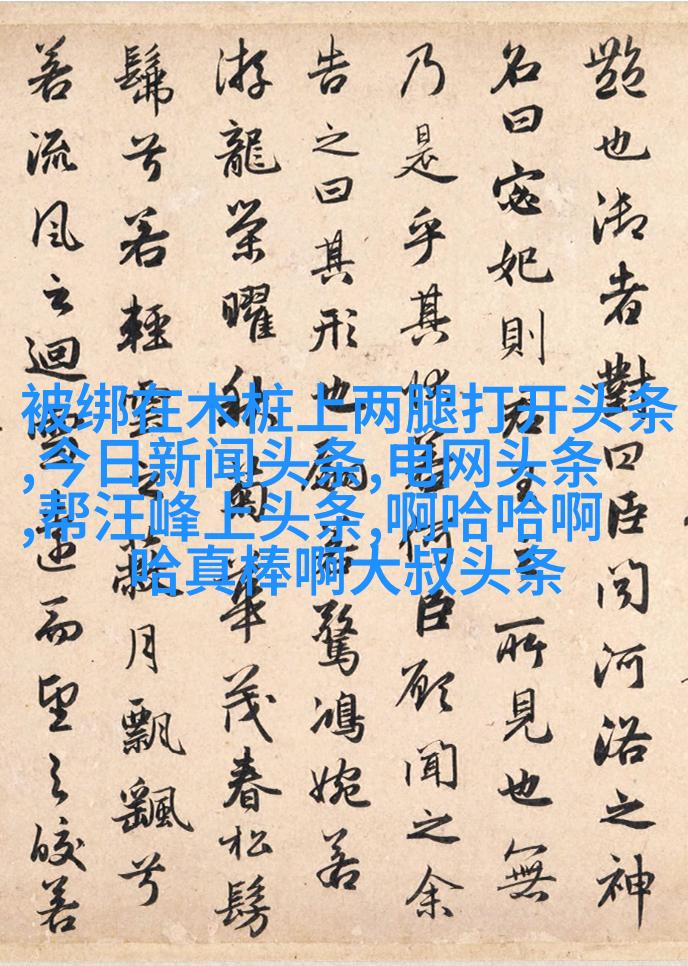 艷也御者對曰臣聞河洛之神
名曰宓妃則君王之所見也無
乃是乎其狀若何臣願聞之余
告之曰其形也翩若驚鴻婉若
游龍榮曜秋菊華茂春松髣
髴兮若輕雲之蔽月飄颻兮
若流風之迴雪遠而望之皎若
被绑在木桩上两腿打开头条
,今日新闻头条,电网头条
,帮汪峰上头条,啊哈哈啊
哈真棒啊大叔头条